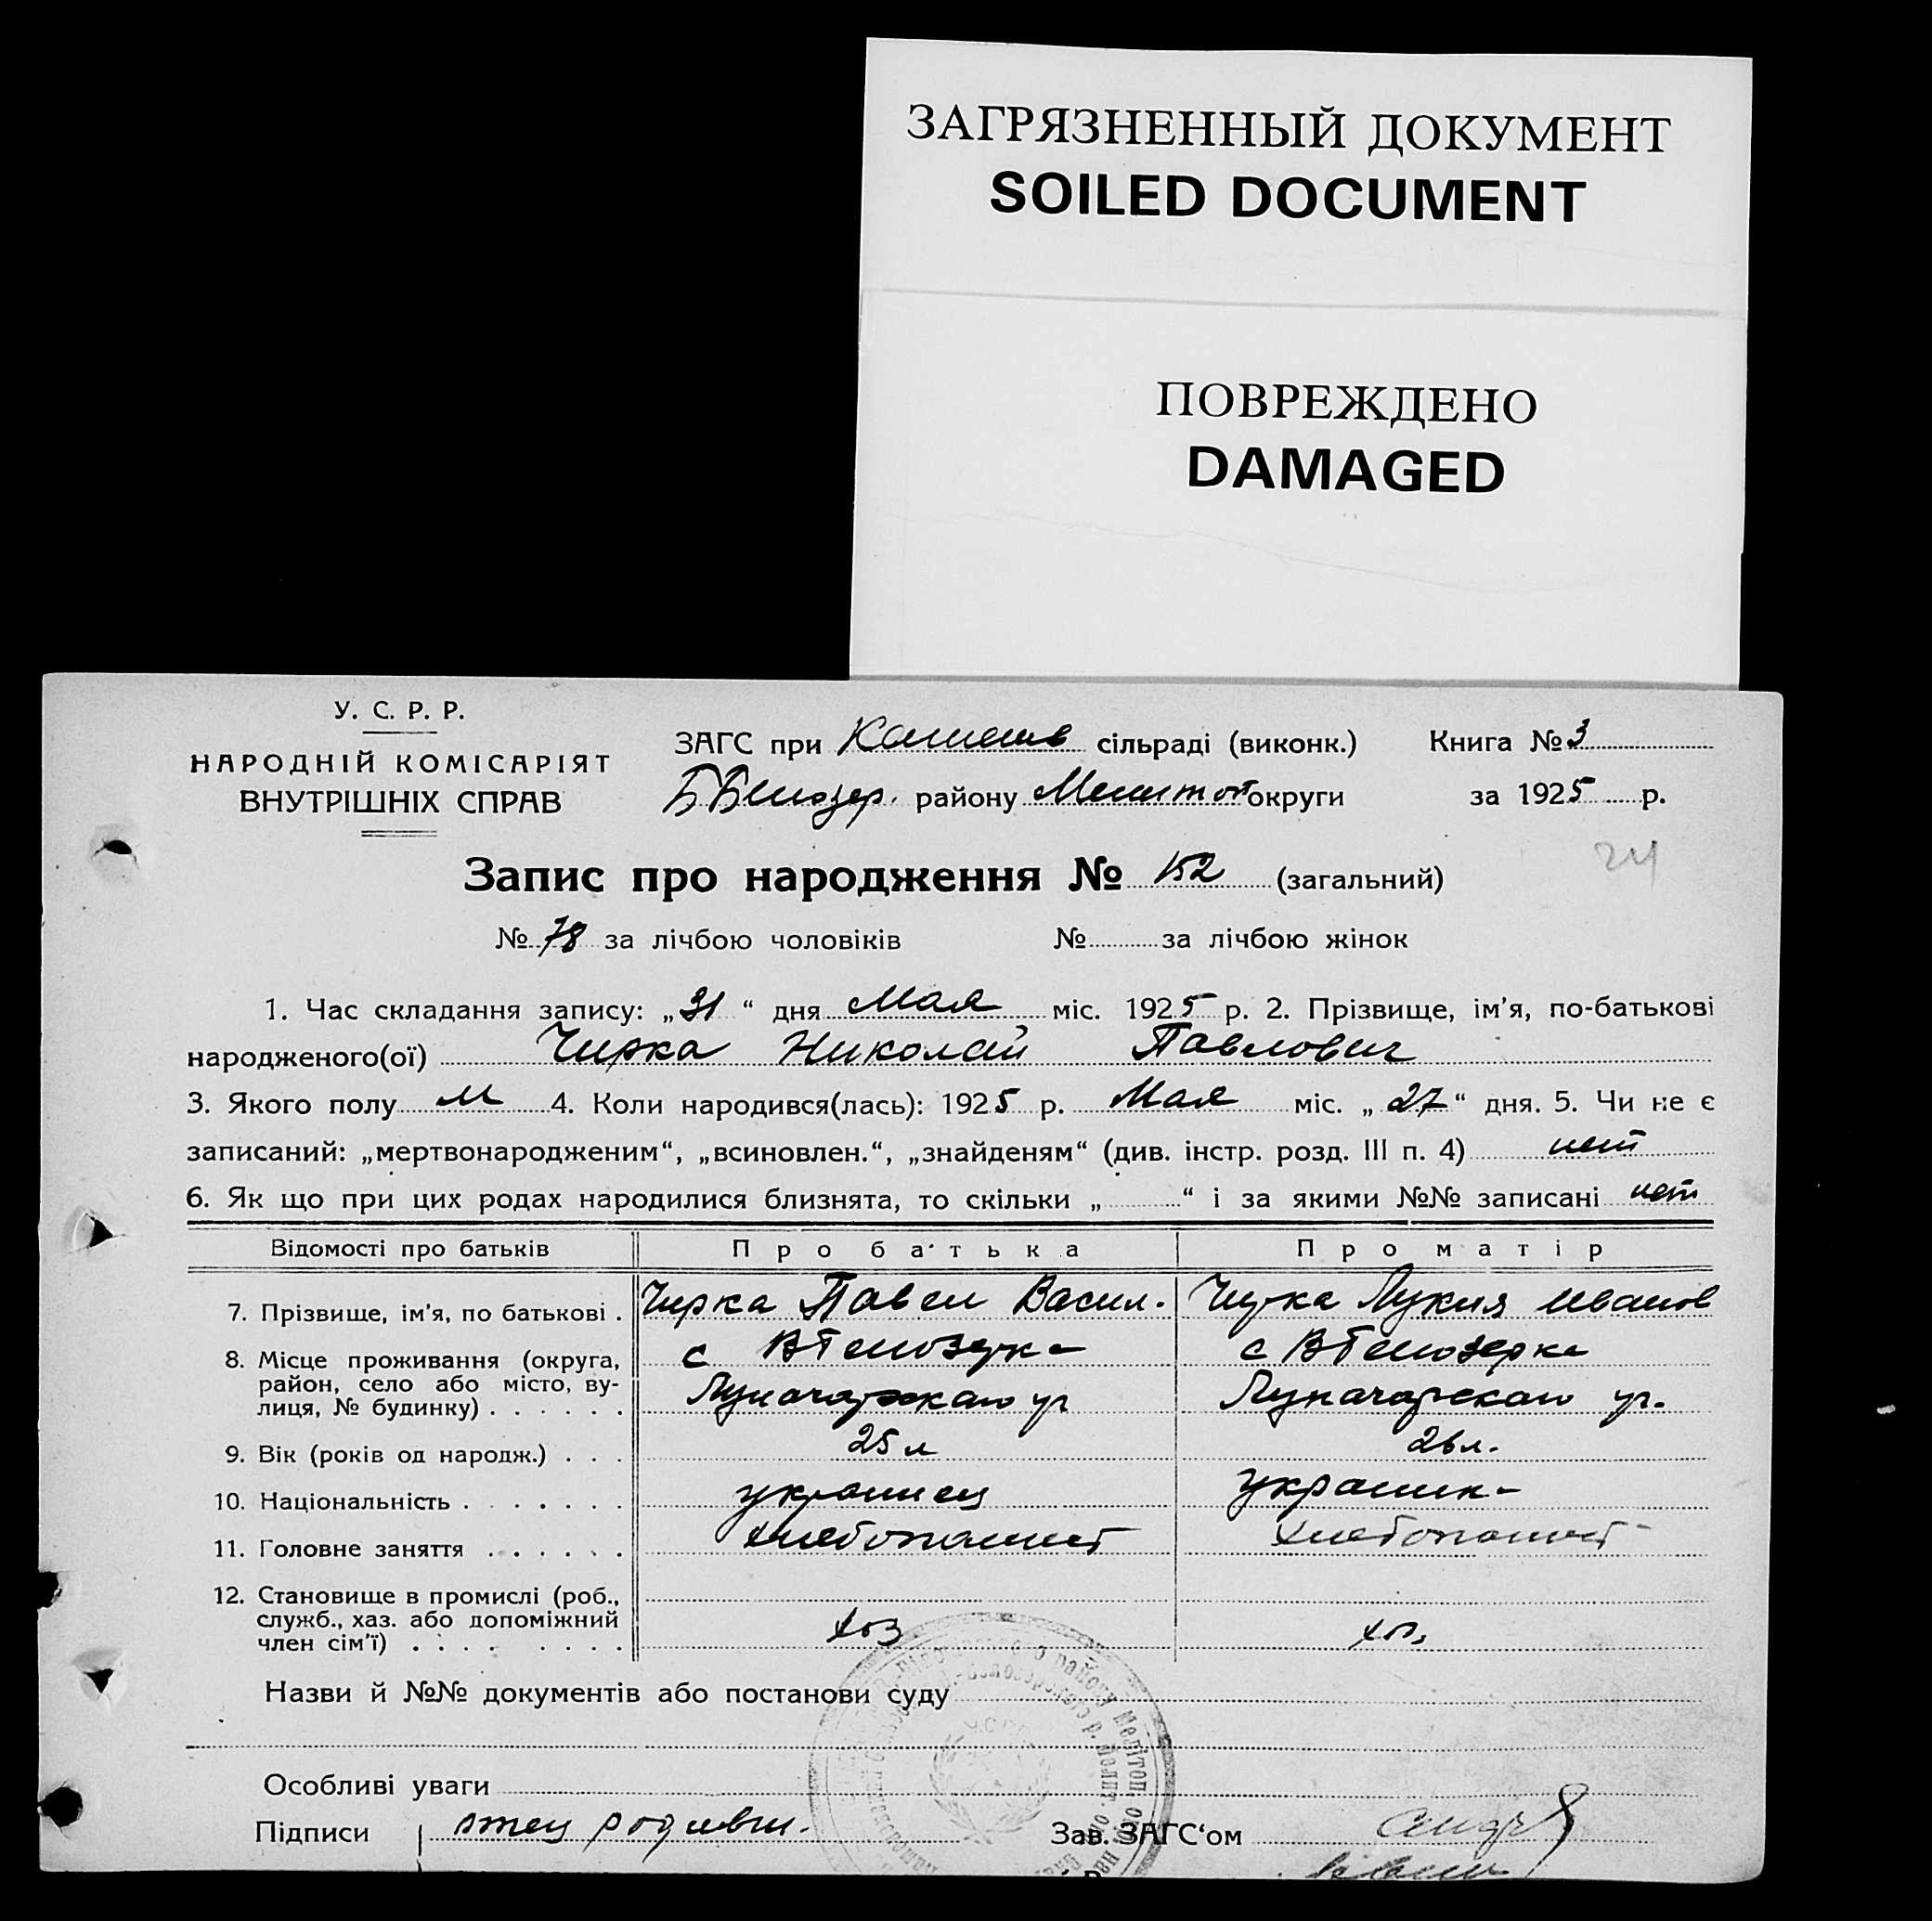 ЗАГРЯЗНЕННЫЙ ДОКУМЕНТ
SOILED DOCUMENT
ПОВРЕЖДЕНО
DAMAGED
У. С. Р. Р.
НАРОДНІЙ КОМІСАРІЯТ
ВНУТРІШНІХ СПРАВ
ЗАГС при сільраді (виконк.)
Книга № 3
району Мелитоп округи
за 1925 р.
24
Запис про народження № 152 (загальний)
№ 78 за лічбою чоловіків № за лічбою жінок
1. Час складання запису: „31“ дня Мая міс. 1925 р. 2. Прізвище, ім'я, по-батькові
народженого(ої) Чирка Николай Павлович
3. Якого полу м 4. Коли народився(лась): 1925 р. Мая міс. „27“ дня. 5. Чи не є
записаний: „мертвонародженим“, „всиновлен.“, „знайденям“ (див. інстр. розд. III п. 4) нет
6. Як що при цих родах народилися близнята, то скільки „ “ і за якими №№ записані нет
Відомості про батьків Про батька Про матір
7. Прізвище, ім'я, по батькові . Чирка Павел Васил. Чирка Лукия Иванов
8. Місце проживання (округа, с с
район, село або місто, ву- Луначарскаго ул Луначарскаго ул.
лиця, № будинку) . . . . . .
9. Вік (років од народж.) . . . 25 л 26 л.
10. Національність . . . . . . . украинец украинк
11. Головне заняття . . . . . . хлебопашест хлебопашест
12. Становище в промислі (роб.,
служб., хаз. або допоміжний хоз хоз
член сім'ї) . . . . . . . .
Назви й №№ документів або постанови суду
Особливі уваги
Підписи отец Зав. ЗАГС‘ом